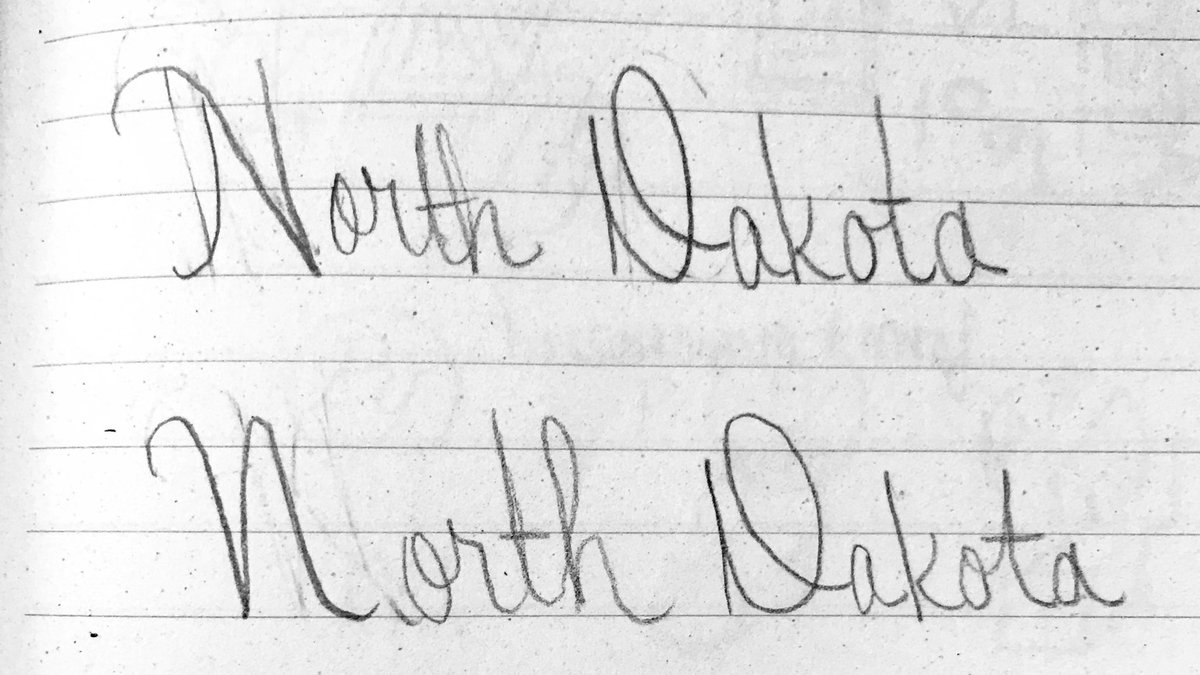 North Dakota
North Dakota